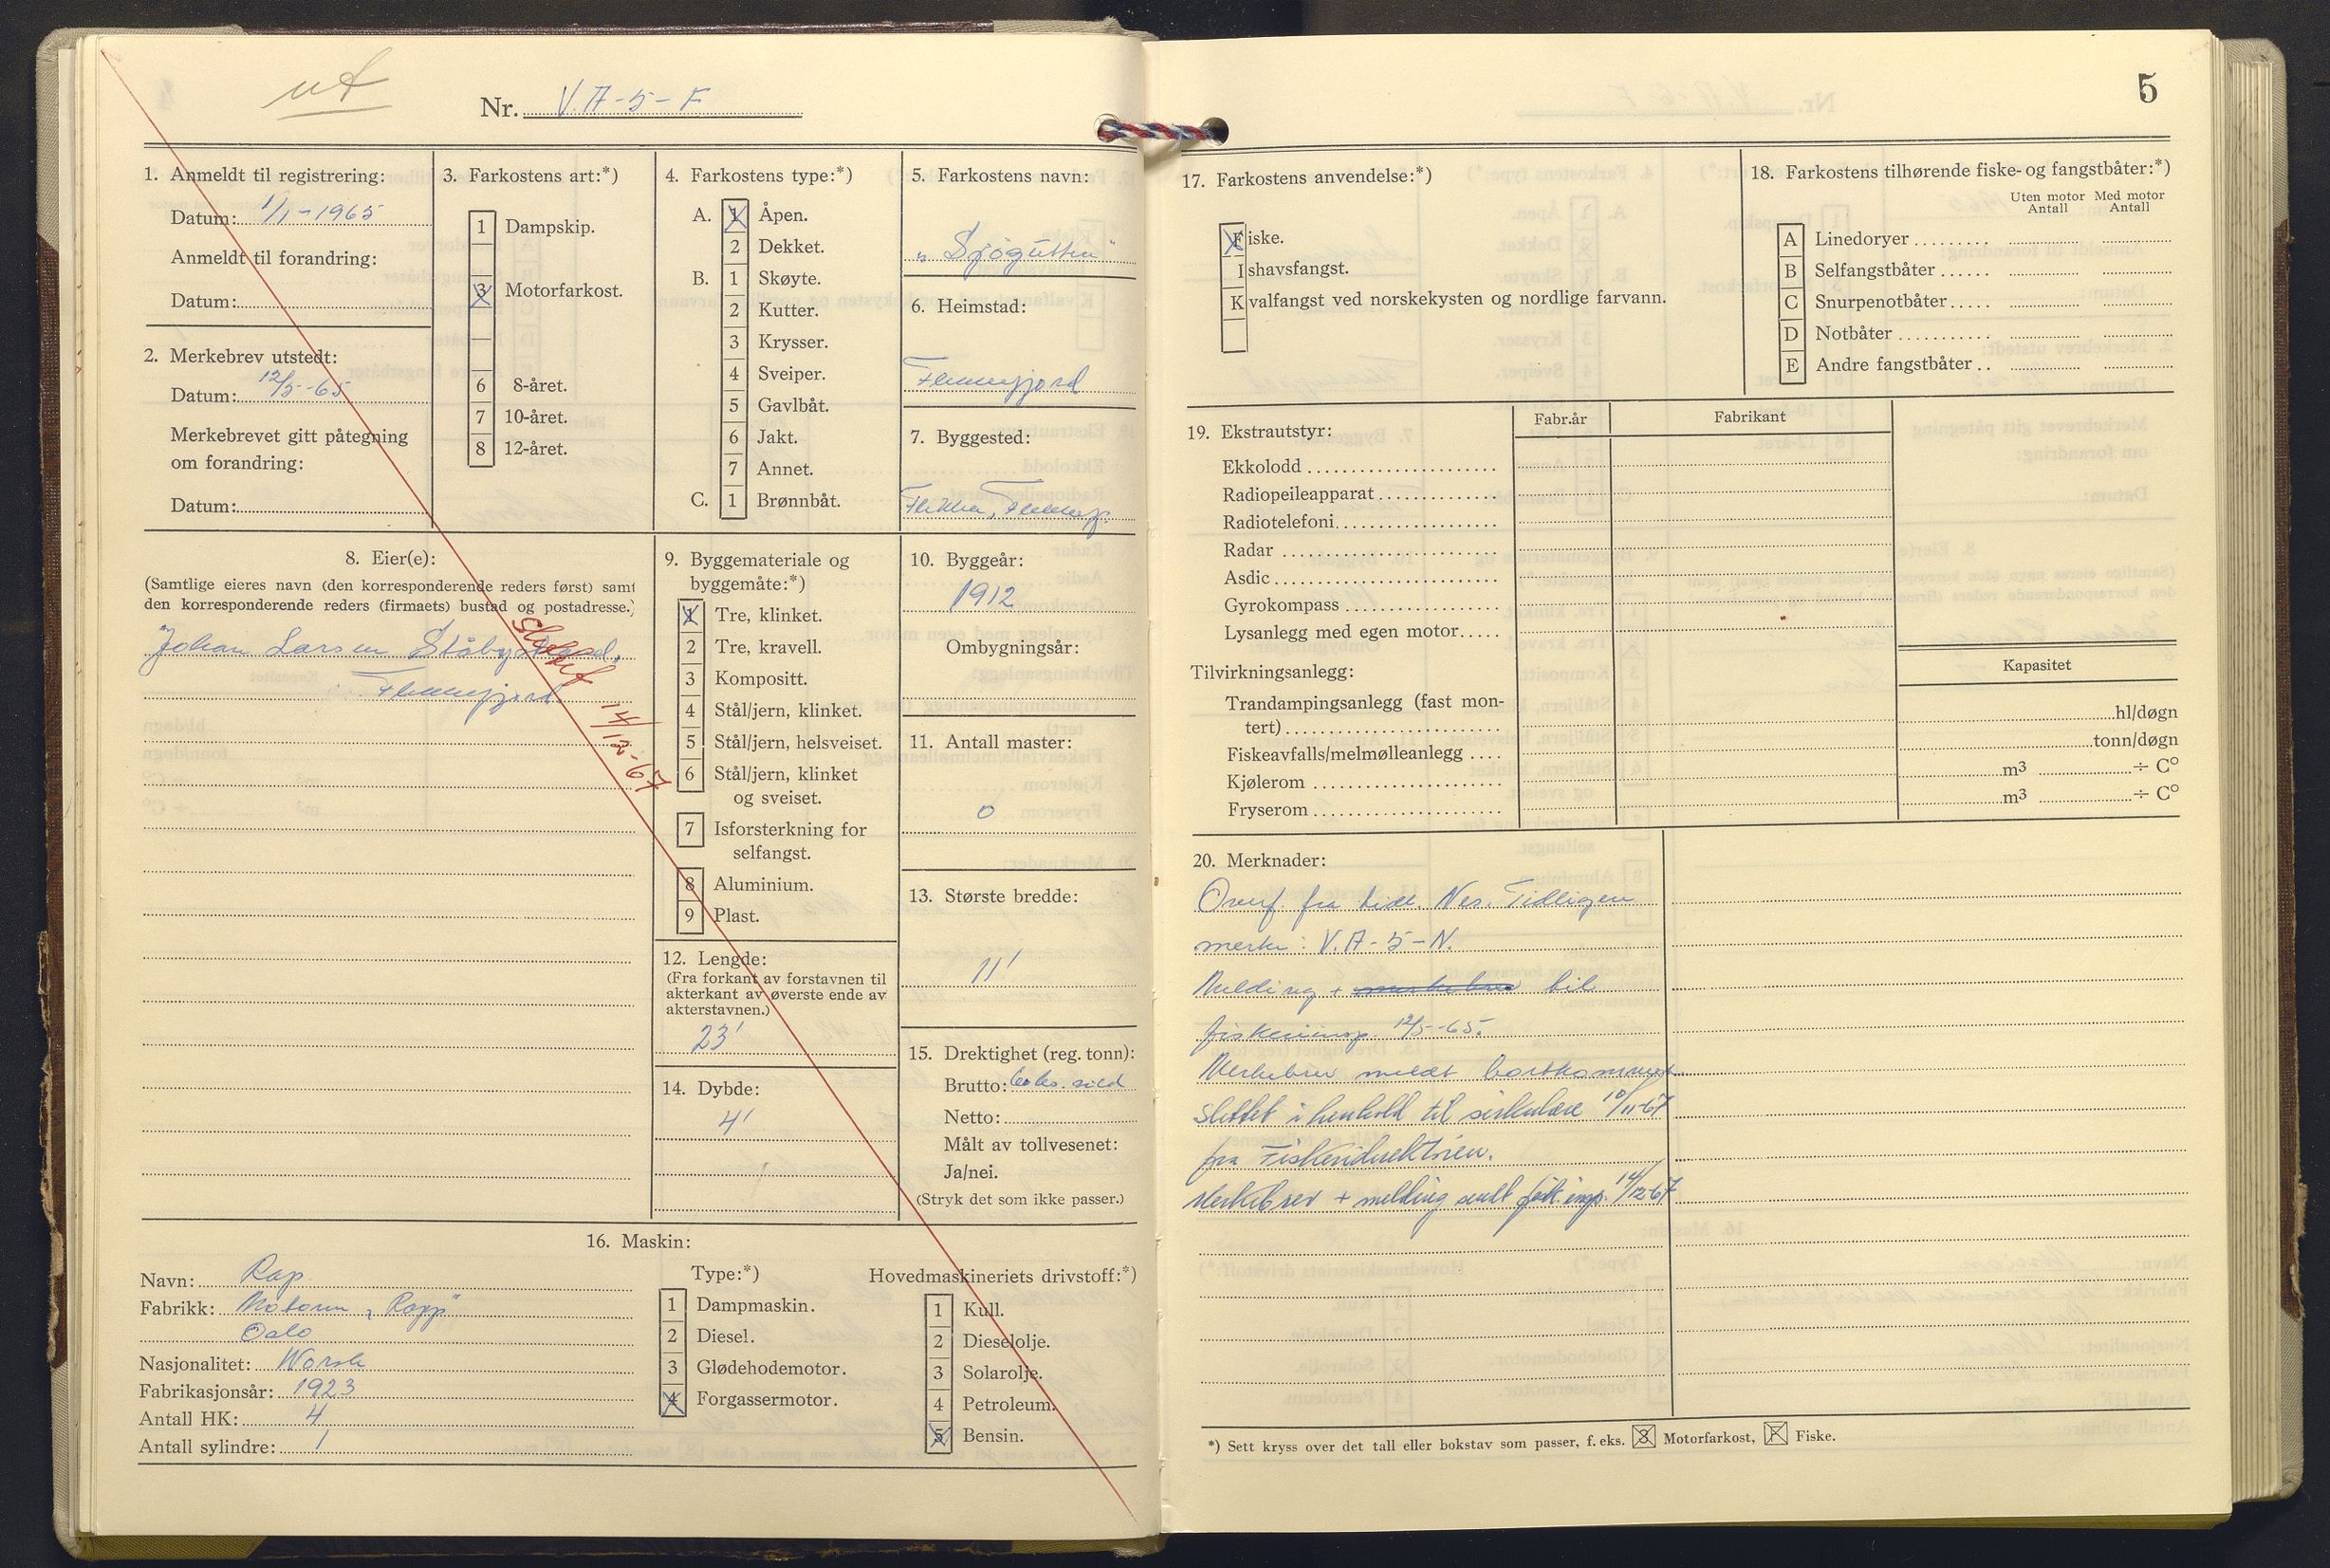 ut
Nr. V.A-5-F
1. Anmeldt til registrering:
Datum: 1/1-1965
Anmeldt til forandring:
Datum:
2. Merkebrev utstedt:
Datum: 12/5-65
Merkebrevet gitt påtegning
om forandring:
Datum:
3. Farkostens art:*)
1 Dampskip.
3 Motorfarkost.
6 8-året.
7 10-året.
8 12-året.
4. Farkostens type:*)
A. 1 Åpen.
2 Dekket.
B. 1 Skøyte.
2 Kutter.
3 Krysser.
4 Sveiper.
5 Gavlbåt.
6 Jakt.
7 Annet.
C. 1 Brønnbåt.
5. Farkostens navn:
„Sjøgutten"
6. Heimstad:
Flekkefjord
7. Byggested:
Flikka, Flekkefj.
8. Eier(e):
(Samtlige eieres navn (den korresponderende reders først) samt
den korresponderende reders (firmaets) bustad og postadresse.)
Johan Larsen
Flekkefjord
Slettet
14/12-67
9. Byggemateriale og
byggemåte:*)
1 Tre, klinket.
2 Tre, kravell.
3 Kompositt.
4 Stål/jern, klinket.
5 Stål/jern, helsveiset.
6 Stål/jern, klinket
og sveiset.
7 Isforsterkning for
selfangst.
8 Aluminium.
9 Plast.
10. Byggeår:
1912
Ombygningsår:
11. Antall master:
0
12. Lengde:
(Fra forkant av forstavnen til
akterkant av øverste ende av
akterstavnen.)
23'
13. Største bredde:
11'
14. Dybde:
4'
15. Drektighet (reg. tonn):
Brutto: sild
Netto:
Målt av tollvesenet:
Ja/nei.
(Stryk det som ikke passer.)
16. Maskin:
Navn: Rap.
Fabrikk: Motoren „Rapp"
Oslo
Nasjonalitet: Norsk
Fabrikasjonsår: 1923
Antall HK: 4
Antall sylindre: 1
Type:*)
1 Dampmaskin.
2 Diesel.
3 Glødehodemotor.
4 Forgassermotor.
Hovedmaskineriets drivstoff:*)
1 Kull.
2 Dieselolje.
3 Solarolje.
4 Petroleum.
5 Bensin.
5
17. Farkostens anvendelse:*)
Fiske.
Ishavsfangst.
Kvalfangst ved norskekysten og nordlige farvann.
18. Farkostens tilhørende fiske- og fangstbåter:*)
Uten motor Med motor
Antall Antall
A Linedoryer
B Selfangstbåter
C Snurpenotbåter
D Notbåter
E Andre fangstbåter
19. Ekstrautstyr:
Fabr.år Fabrikant
Ekkolodd
Radiopeileapparat
Radiotelefoni
Radar
Asdic
Gyrokompass
Lysanlegg med egen motor
Tilvirkningsanlegg:
Kapasitet
Trandampingsanlegg (fast mon-
tert) hl/døgn
Fiskeavfalls/melmølleanlegg tonn/døgn
Kjølerom m³ ÷ C°
Fryserom m³ ÷ C°
20. Merknader:
Overf. fra tidl. Nes. Tidligere
merke: V.A-5-N.
Melding + merkebrev til
fiskeriinsp. 12/5-65.
Merkebrev meldt bortkommet
Slettet i henhold til sirkulære 10/11-67
fra Fiskeridirektøren.
Merkebrev + melding sendt fisk.insp. 14/12-67
*) Sett kryss over det tall eller bokstav som passer, f. eks. 3 Motorfarkost, F Fiske.